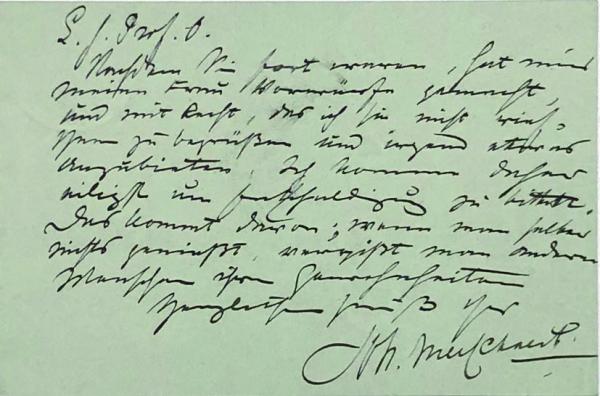 L. H. Prof. O.
Nachdem Sie fort waren, hat mir
meine Frau Vorwürfe gemacht,
und mit Recht, das ich Sie nicht
zu begrüßen und irgend etwas
anzubieten. Ich komme daher
eiligst um Entschuldigung zu bitten.
Das kommt davon; wenn man selber
nichts genießt, vergißt man anderen
Menschen ihre Gewohnheiten
Herzlichen Gruß Ihr